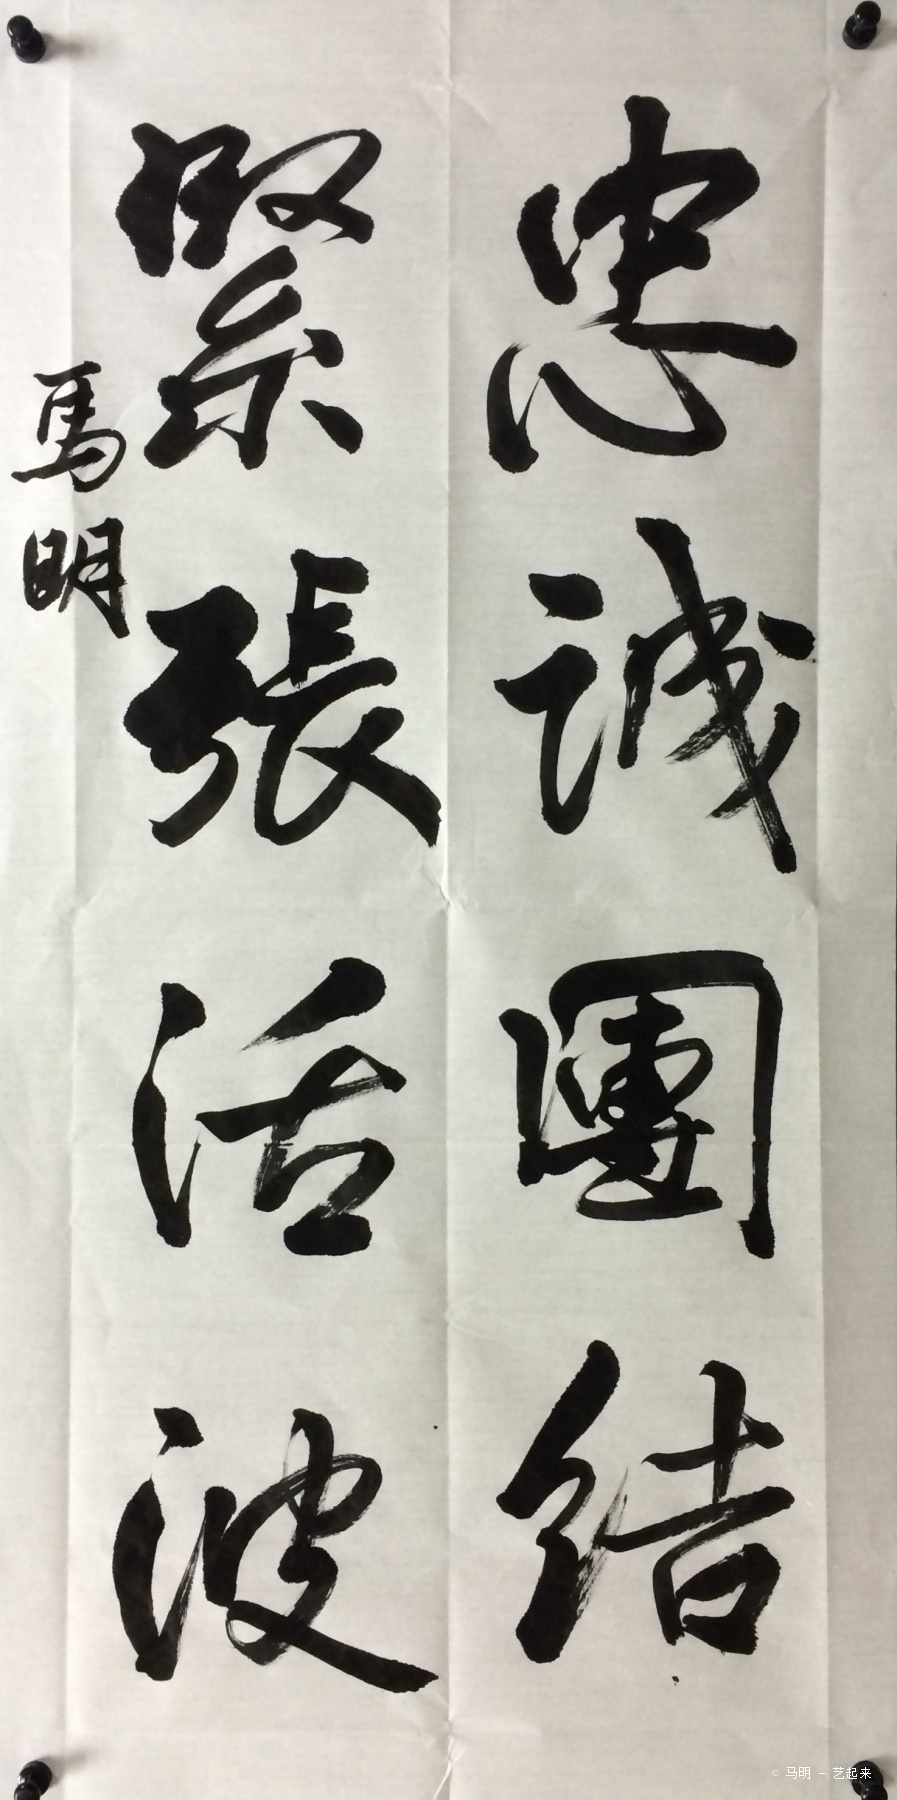 忠誠團結
緊張活波
馬明
© 马明 - 艺起来